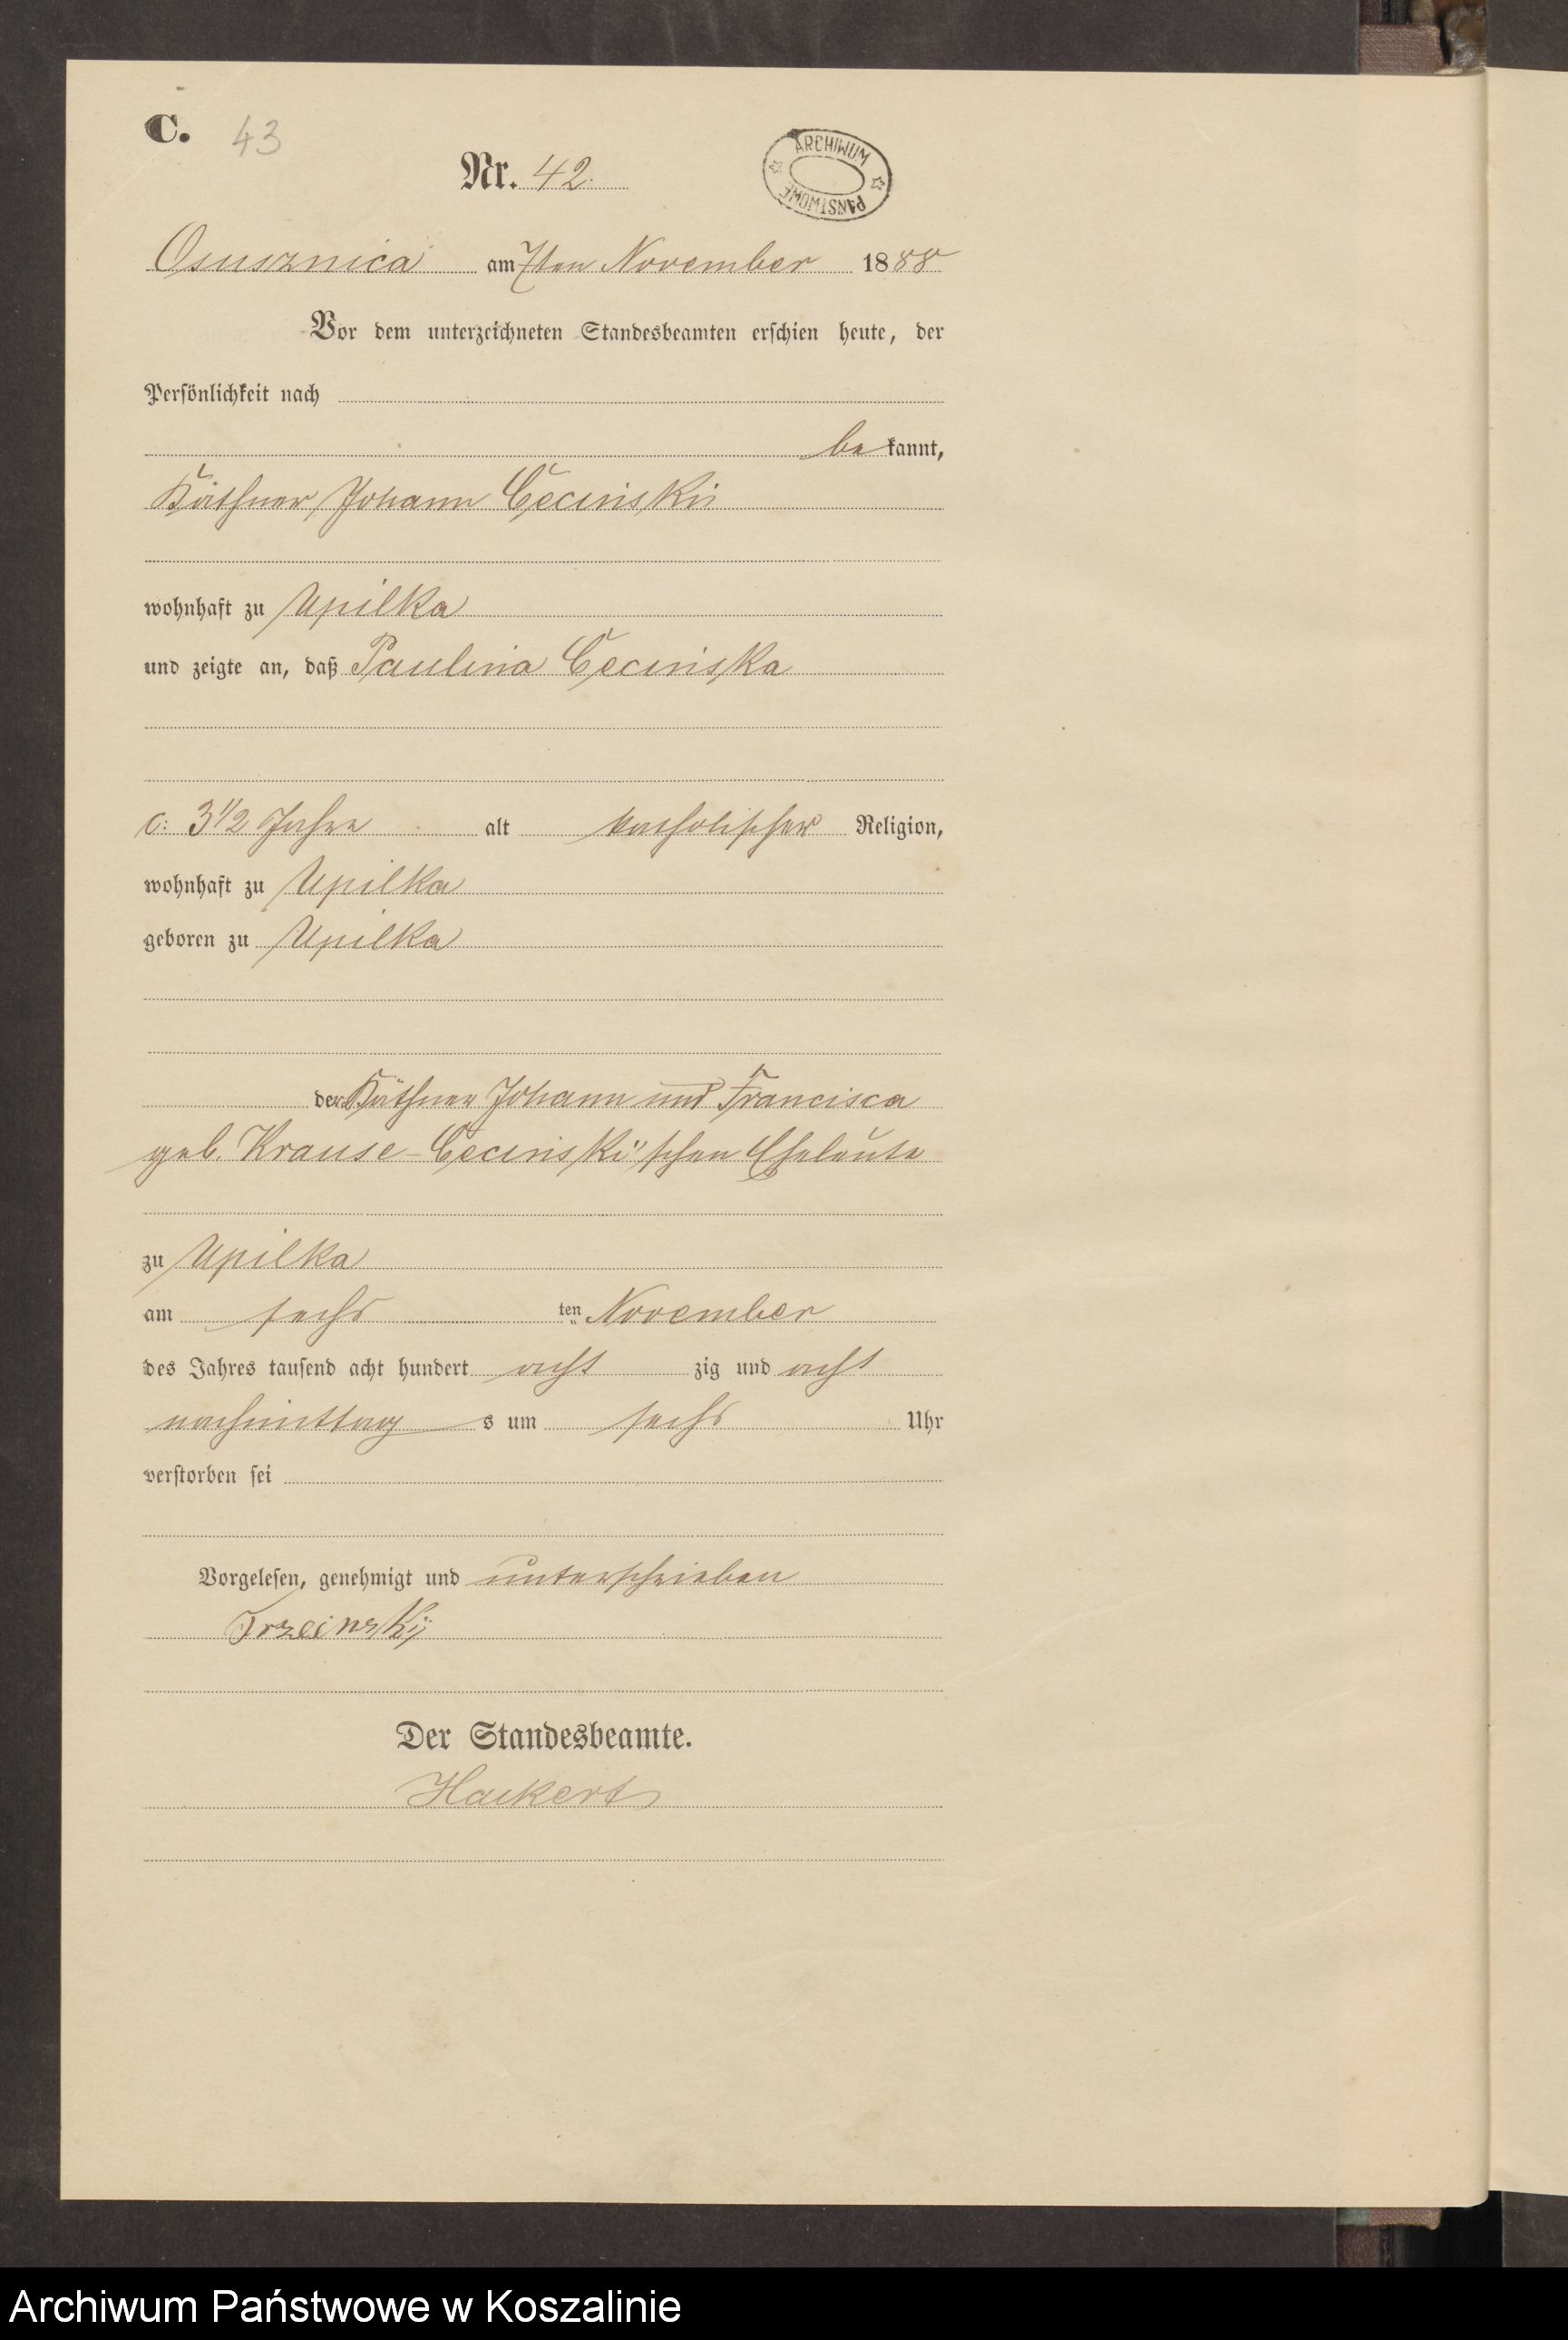 C. 43
Nr. 42.
ARCHIWUM PAŃSTWOWE
Osusznica am 7ten November 1888
Vor dem unterzeichneten Standesbeamten erschien heute, der
Persönlichkeit nach
be kannt,
Käthner Johann
wohnhaft zu Upilka
und zeigte an, daß Paulina
c: 3 1/2 Jahre alt katholischer Religion,
wohnhaft zu Upilka
geboren zu Upilka
der Käthner Johann und Francisca
geb. Krause - schen Eheleute
zu Upilka
am sechs ten November
des Jahres tausend acht hundert acht zig und acht
nachmittag s um sechs Uhr
verstorben sei
Vorgelesen, genehmigt und unterschrieben
Trzcinski
Der Standesbeamte.
Archiwum Państwowe w Koszalinie